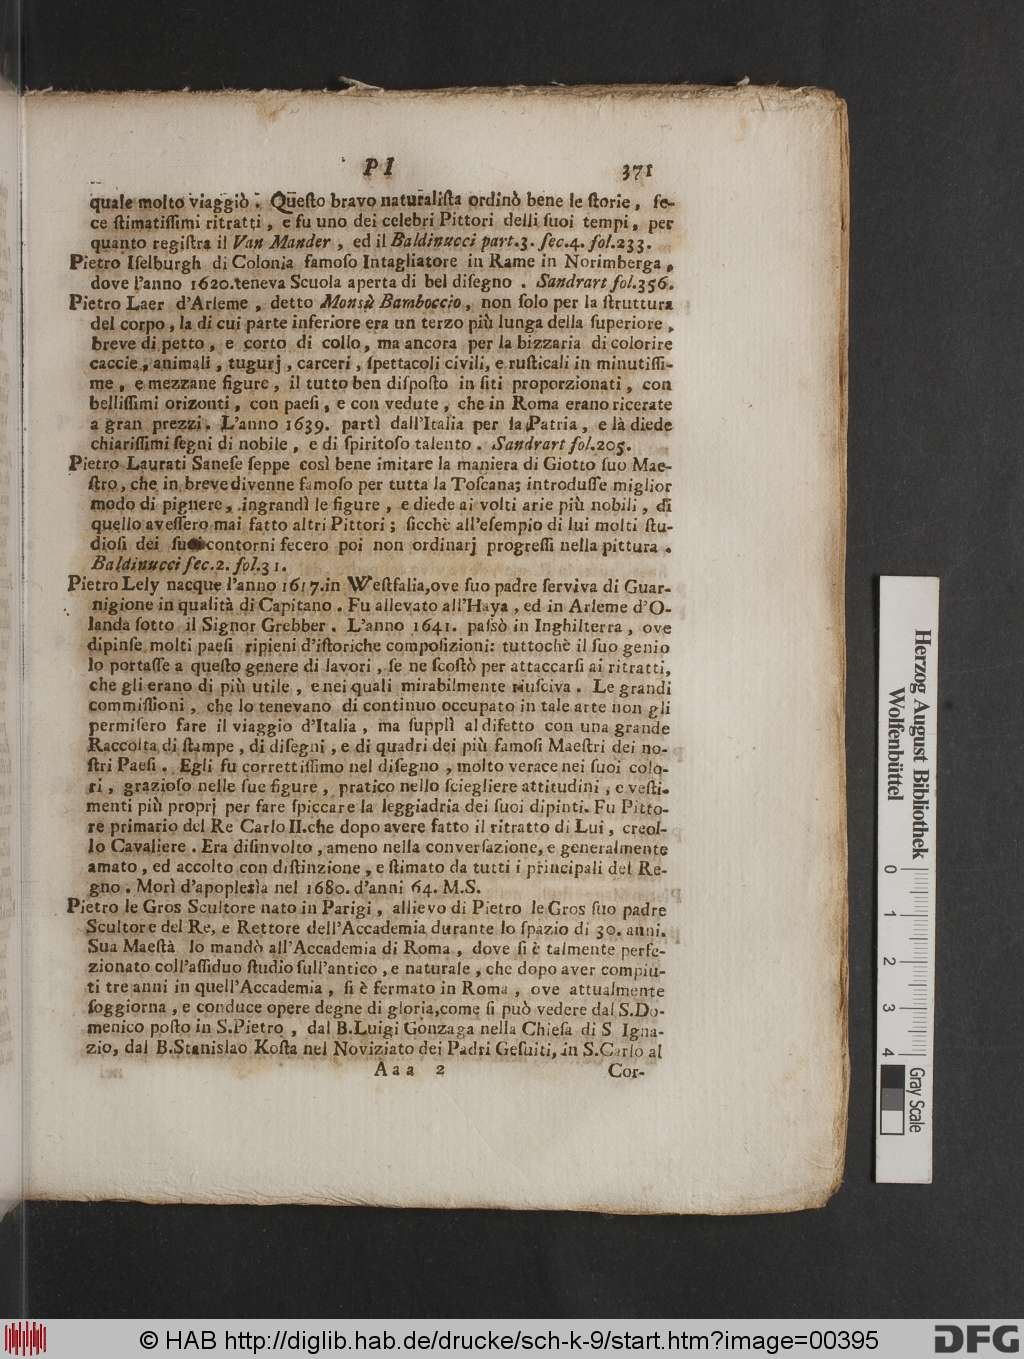 PI 371
quale molto viaggiò. Queſto bravo naturaliſta ordinò bene le ſtorie, fe-
ce ſtimatiſſimi ritratti, e fu uno dei celebri Pittori delli ſuoi tempi, per
quanto regiſtra il Van Mander, ed il Baldinucci part.3. ſec.4. fol.233.
Pietro Iſelburgh di Colonia famoſo Intagliatore in Rame in Norimberga,
dove l'anno 1620.teneva Scuola aperta di bel diſegno. Sandrart fol.356.
Pietro Laer d'Arleme, detto Monsù Bamboccio, non ſolo per la ſtruttura
del corpo, la di cui parte inferiore era un terzo più lunga della ſuperiore,
breve di petto, e corto di collo, ma ancora per la bizzaria di colorire
caccie, animali, tugurj, carceri, ſpettacoli civili, e ruſticali in minutiſſi-
me, e mezzane figure, il tutto ben diſpoſto in ſiti proporzionati, con
belliſſimi orizonti, con paeſi, e con vedute, che in Roma erano ricerate
a gran prezzi. L'anno 1639. partì dall'Italia per la Patria, e là diede
chiariſſimi ſegni di nobile, e di ſpiritoſo talento. Sandrart fol.205.
Pietro Laurati Saneſe ſeppe così bene imitare la maniera di Giotto ſuo Mae-
ſtro, che in breve divenne famoſo per tutta la Toſcana; introduſſe miglior
modo di pignere, ingrandì le figure, e diede ai volti arie più nobili, di
quello aveſſero mai fatto altri Pittori; ſicchè all'eſempio di lui molti ſtu-
dioſi dei contorni fecero poi non ordinarj progreſſi nella pittura.
Baldinucci ſec.2. fol.31.
Pietro Lely nacque l'anno 1617.in Weſtfalia,ove ſuo padre ſerviva di Guar-
nigione in qualità di Capitano. Fu allevato all'Haya, ed in Arleme d'O-
landa ſotto il Signor Grebber. L'anno 1641. paſsò in Inghilterra, ove
dipinſe molti paeſi ripieni d'iſtoriche compoſizioni: tuttochè il ſuo genio
lo portaſſe a queſto genere di lavori, ſe ne ſcoſtò per attaccarſi ai ritratti,
che gli erano di più utile, e nei quali mirabilmente riuſciva. Le grandi
commiſſioni, che lo tenevano di continuo occupato in tale arte non gli
permiſero fare il viaggio d'Italia, ma ſupplì al difetto con una grande
Raccolta di ſtampe, di diſegni, e di quadri dei più famoſi Maeſtri dei no-
ſtri Paeſi. Egli fu correttiſſimo nel diſegno, molto verace nei ſuoi colo-
ri, grazioſo nelle ſue figure, pratico nello ſciegliere attitudini, e veſti-
menti più proprj per fare ſpiccare la leggiadria dei ſuoi dipinti. Fu Pitto-
re primario del Re Carlo II.che dopo avere fatto il ritratto di Lui, creol-
lo Cavaliere. Era diſinvolto, ameno nella converſazione, e generalmente
amato, ed accolto con diſtinzione, e ſtimato da tutti i principali del Re-
gno. Morì d'apopleſìa nel 1680. d'anni 64. M.S.
Pietro le Gros Scultore nato in Parigi, allievo di Pietro le Gros ſuo padre
Scultore del Re, e Rettore dell'Accademia durante lo ſpazio di 30. anni.
Sua Maeſtà lo mandò all'Accademia di Roma, dove ſi è talmente perfe-
zionato coll'aſſiduo ſtudio ſull'antico, e naturale, che dopo aver compiu-
ti tre anni in quell'Accademia, ſi è fermato in Roma, ove attualmente
ſoggiorna, e conduce opere degne di gloria,come ſi può vedere dal S.Do-
menico poſto in S.Pietro, dal B.Luigi Gonzaga nella Chieſa di S Igna-
zio, dal B.Stanislao Koſta nel Noviziato dei Padri Geſuiti, in S.Carlo al
Aaa 2 Cor-
Herzog August Bibliothek
Wolfenbüttel
0 1 2 3 4
Gray Scale
© HAB http://diglib.hab.de/drucke/sch-k-9/start.htm?image=00395
DFG